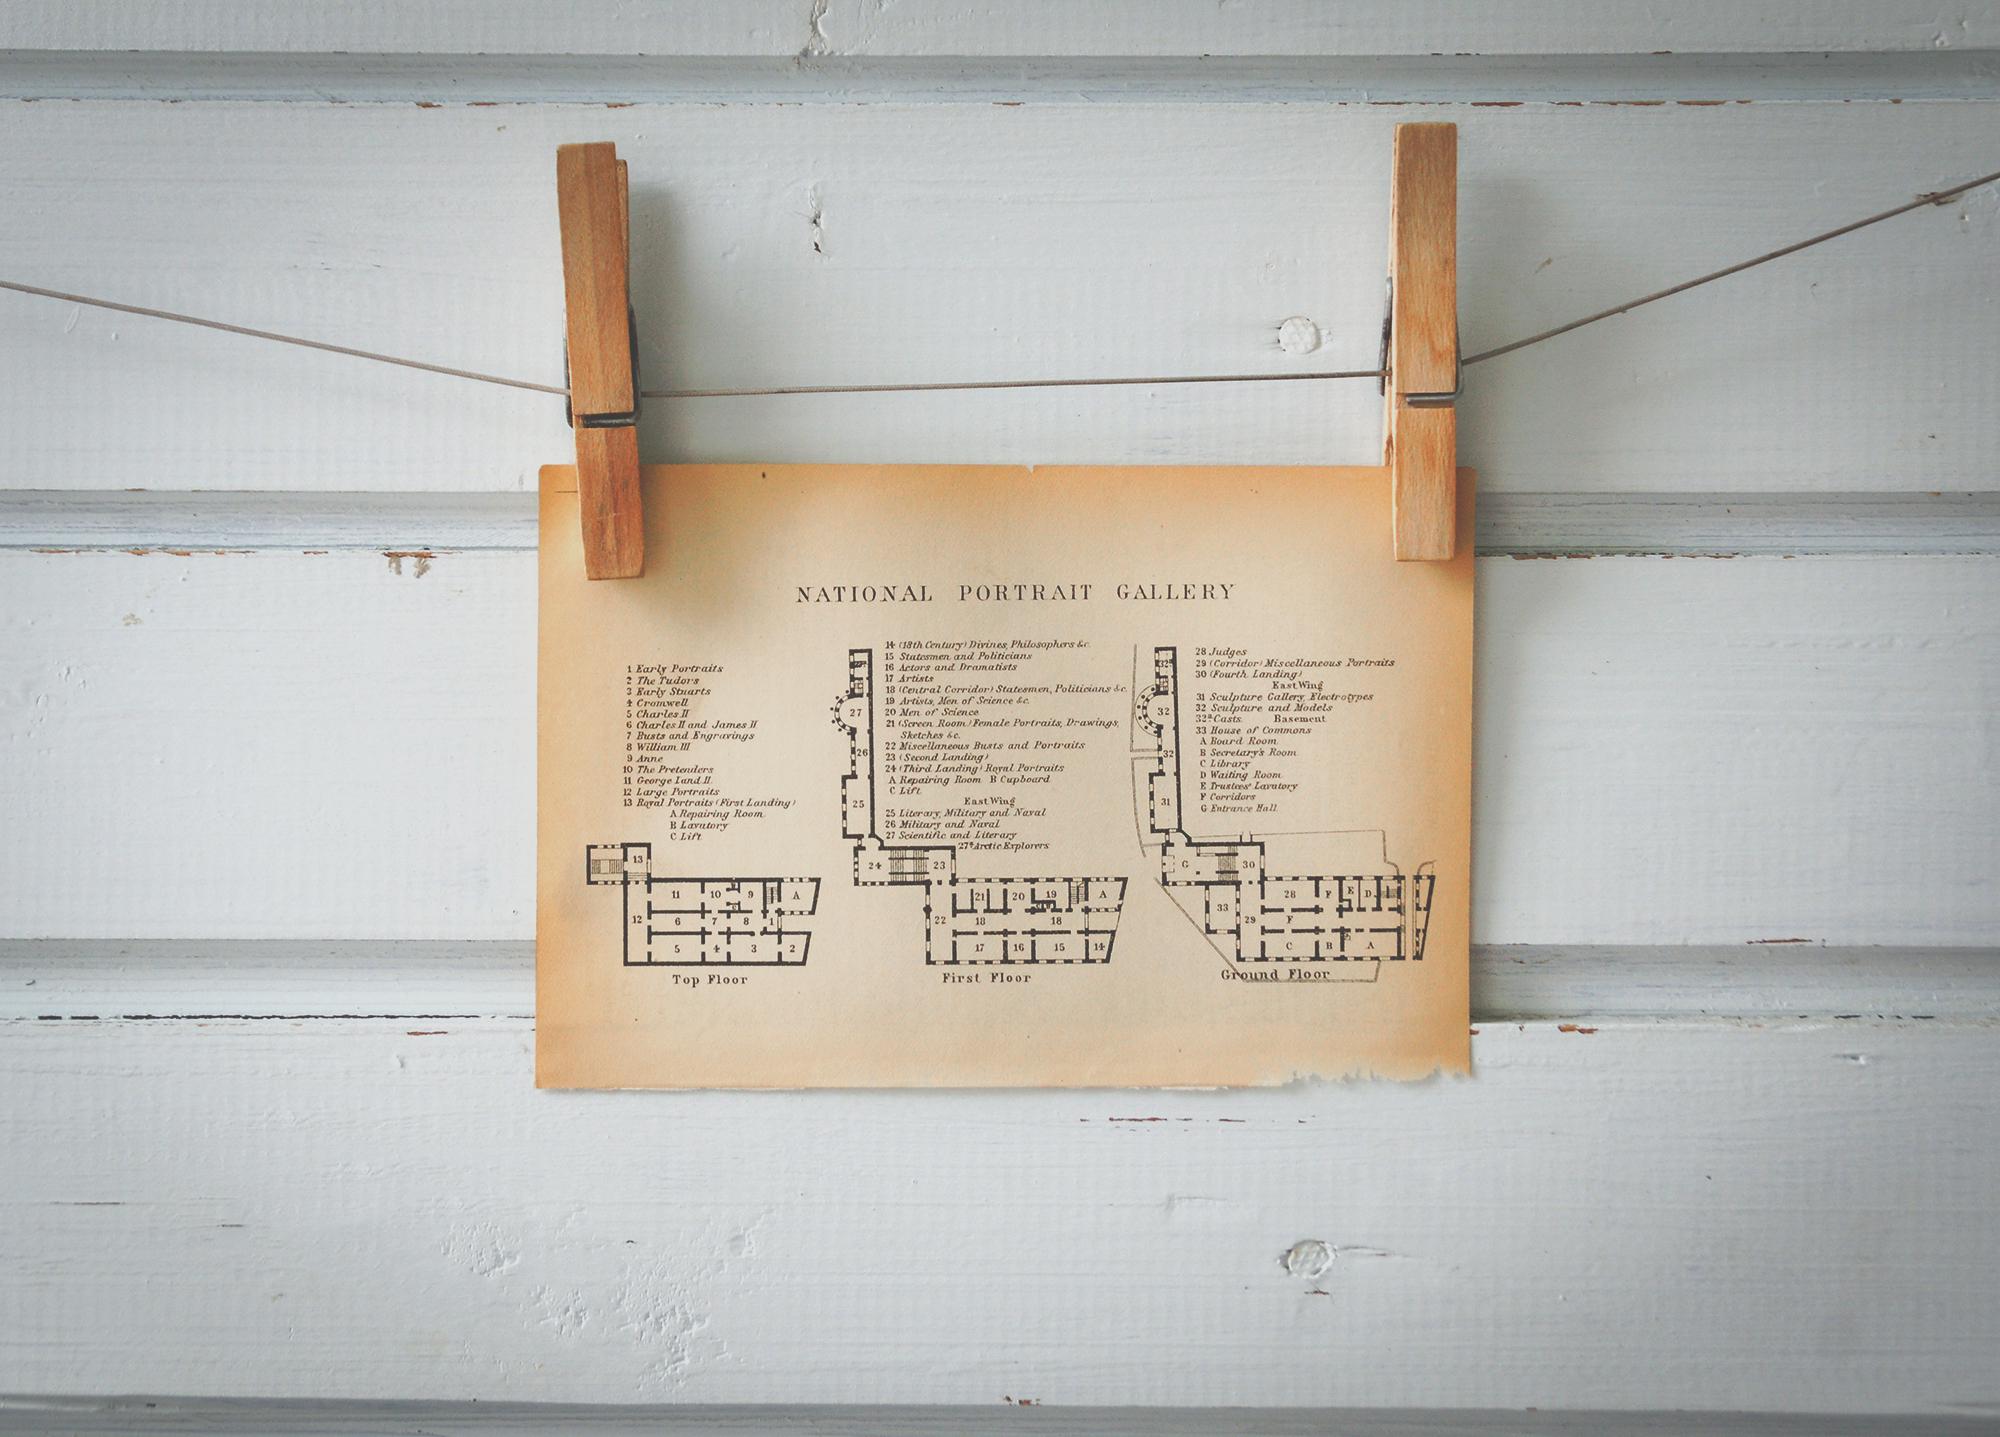 NATIONAL PORTRAIT GALLERY
1 Early Portraits
2 The Tudors
3 Early Stuarts
4 Cromwell
5 Charles II
6 Charles II and James II
7 Busts and Engravings
8 William III
9 Anne
10 The Pretenders
11 George I and II
12 Large Portraits
13 Royal Portraits (First Landing)
A Repairing Room
B Lavatory
C Lift
13
11 10 9 A
12 6 7 8 1
5 4 3 2
Top Floor
14 (18th Century) Divines, Philosophers &c.
15 Statesmen and Politicians
16 Actors and Dramatists
17 Artists
18 (Central Corridor) Statesmen, Politicians &c.
19 Artists, Men of Science &c.
20 Men of Science
21 (Screen Room) Female Portraits, Drawings,
Sketches &c.
22 Miscellaneous Busts and Portraits
23 (Second Landing)
24 (Third Landing) Royal Portraits
A Repairing Room B Cupboard
C Lift
East Wing
25 Literary, Military and Naval
26 Military and Naval
27 Scientific and Literary
27ª Arctic Explorers
27
26
25
24 23
21 20 19 A
22 18 18
17 16 15 14
First Floor
28 Judges
29 (Corridor) Miscellaneous Portraits
30 (Fourth Landing)
East Wing
31 Sculpture Gallery, Electrotypes
32 Sculpture and Models
32ª Casts. Basement
33 House of Commons
A Board Room
B Secretary's Room
C Library
D Waiting Room
E Trustees' Lavatory
F Corridors
G Entrance Hall
32
32
32
31
G 30
28 F E D
33 29 F
C B A
Ground Floor